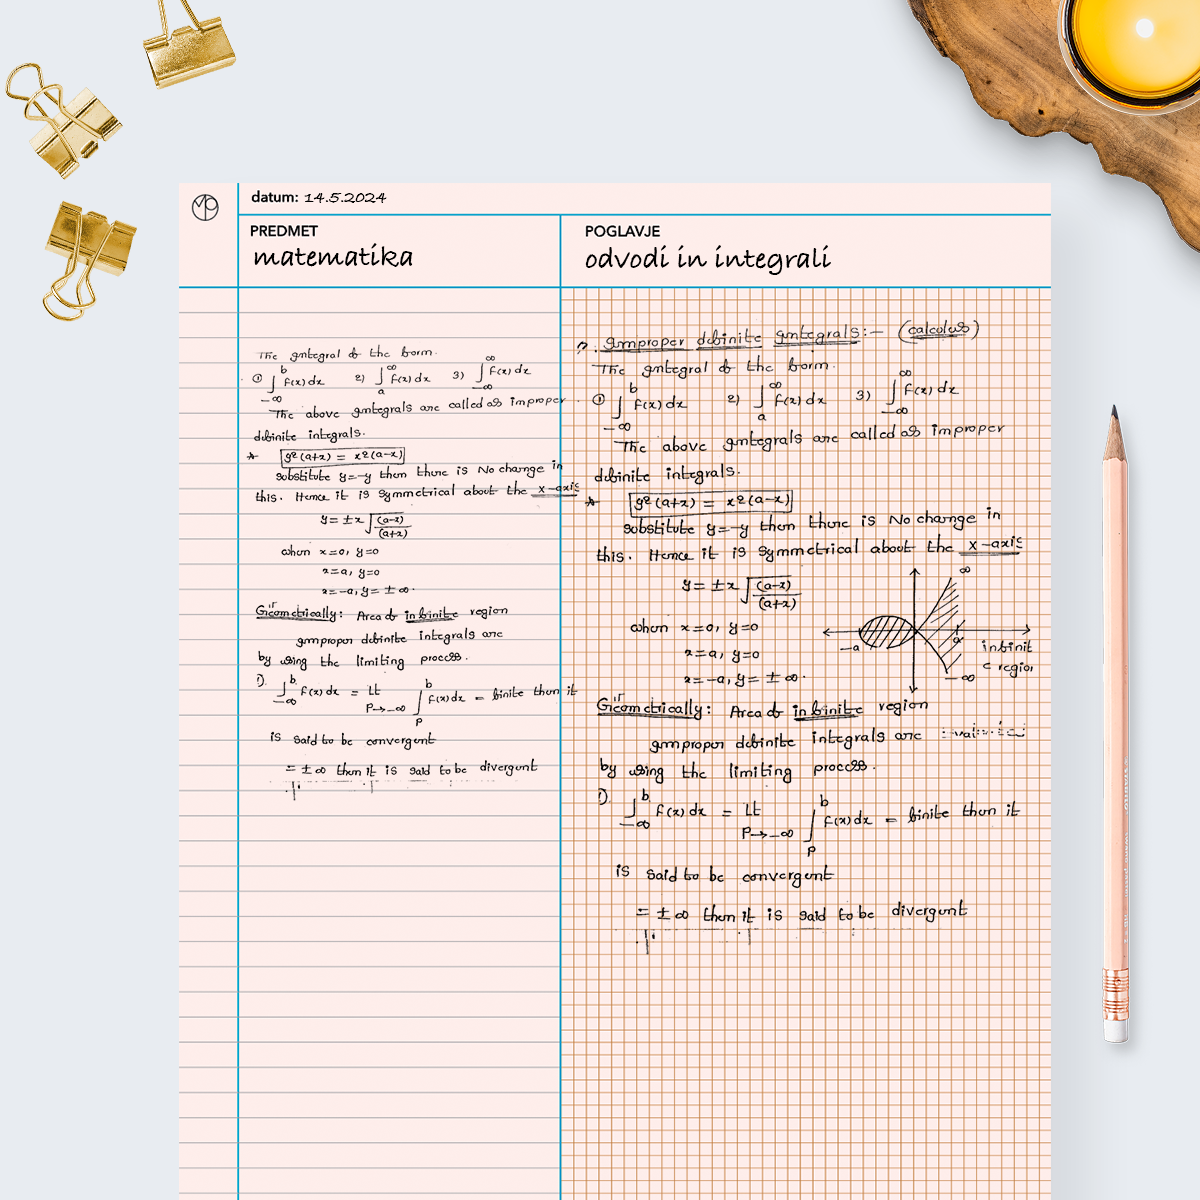 MP
datum: 14.5.2024
PREDMET
matematika
POGLAVJE
odvodi in integrali
The integral of the form.
① ∫_{-∞}^{b} f(x) dx 2) ∫_{a}^{∞} f(x) dx 3) ∫_{-∞}^{∞} f(x) dx
The above integrals are called as improper
definite integrals.
* y²(a+x) = x²(a-x)
substitute y=-y then there is No change in
this. Hence it is symmetrical about the x-axis
y = ±x √((a-x)/(a+x))
when x=0, y=0
x=a, y=0
x=-a, y= ±∞.
Geometrically: Area of infinite region
improper definite integrals are
by using the limiting process.
1). ∫_{-∞}^{b} f(x) dx = Lt_{P→-∞} ∫_{P}^{b} f(x) dx = finite then it
is said to be convergent
= ±∞ then it is said to be divergent
Improper definite integrals:- (calculus)
The integral of the form.
① ∫_{-∞}^{b} f(x) dx 2) ∫_{a}^{∞} f(x) dx 3) ∫_{-∞}^{∞} f(x) dx
The above integrals are called as improper
definite integrals.
* y²(a+x) = x²(a-x)
substitute y=-y then there is No change in
this. Hence it is symmetrical about the x-axis
y = ±x √((a-x)/(a+x))
when x=0, y=0
x=a, y=0
x=-a, y= ±∞.
∞
-a
a
infinit
e region
-∞
Geometrically: Area of infinite region
improper definite integrals are
by using the limiting process.
1). ∫_{-∞}^{b} f(x) dx = Lt_{P→-∞} ∫_{P}^{b} f(x) dx = finite then it
is said to be convergent
= ±∞ then it is said to be divergent